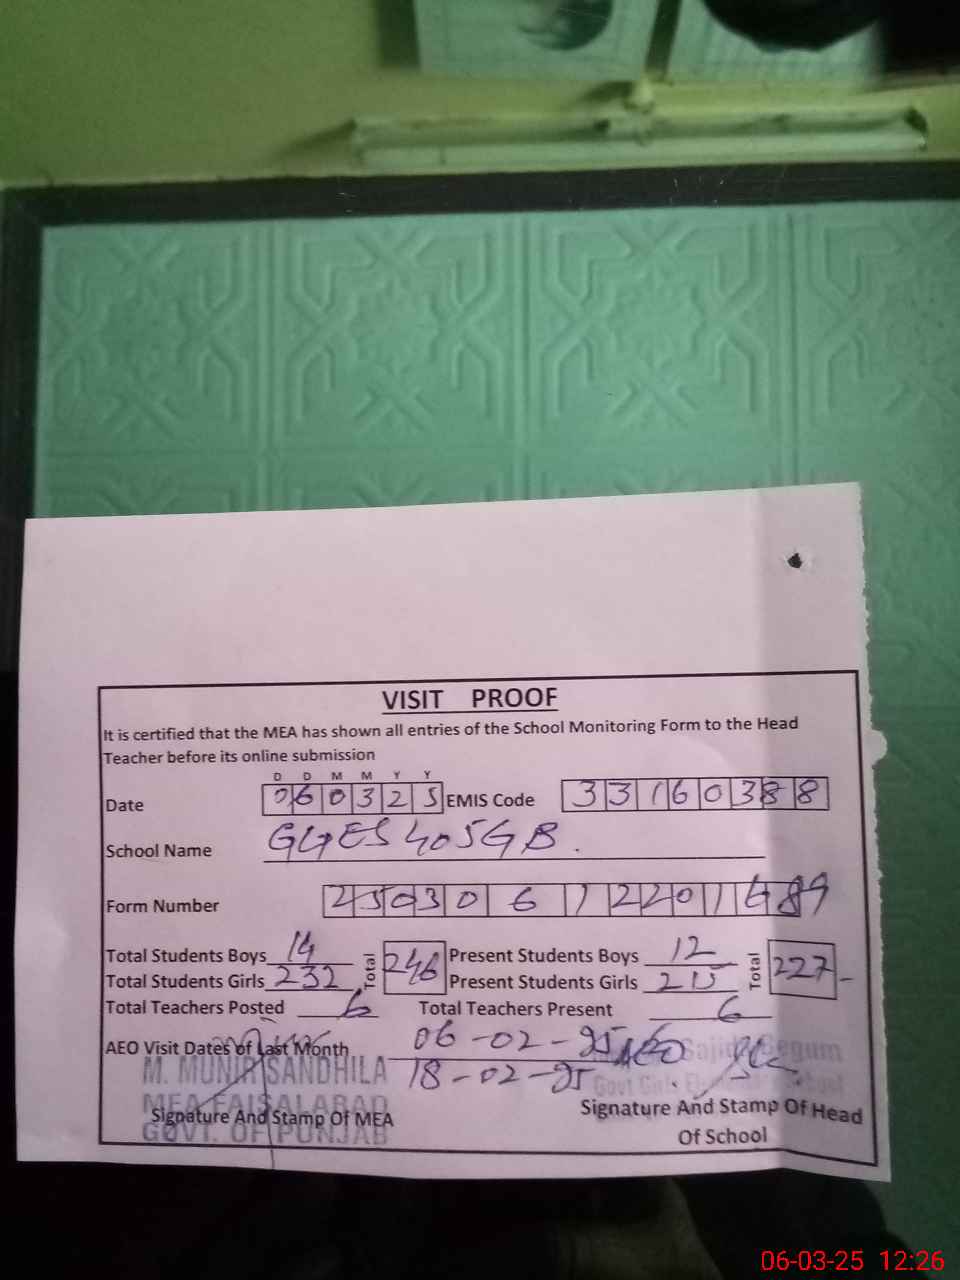 VISIT PROOF
It is certified that the MEA has shown all entries of the School Monitoring Form to the Head
Teacher before its online submission
D D M M Y Y
Date 060325 EMIS Code 33160388
School Name GGES 405GB.
Form Number 25030612201689
Total Students Boys 14 Total 246 Present Students Boys 12 Total 227
Total Students Girls 232 Present Students Girls 215
Total Teachers Posted 6 Total Teachers Present 6
AEO Visit Dates of Last Month 06-02-25 AEO
18-02-25
M. MUNIR SANDHILA
MEA FAISALABAD
GOVT. OF PUNJAB
Signature And Stamp Of MEA
Sajida Begum
Govt Girls School
Signature And Stamp Of Head
Of School
06-03-25 12:26